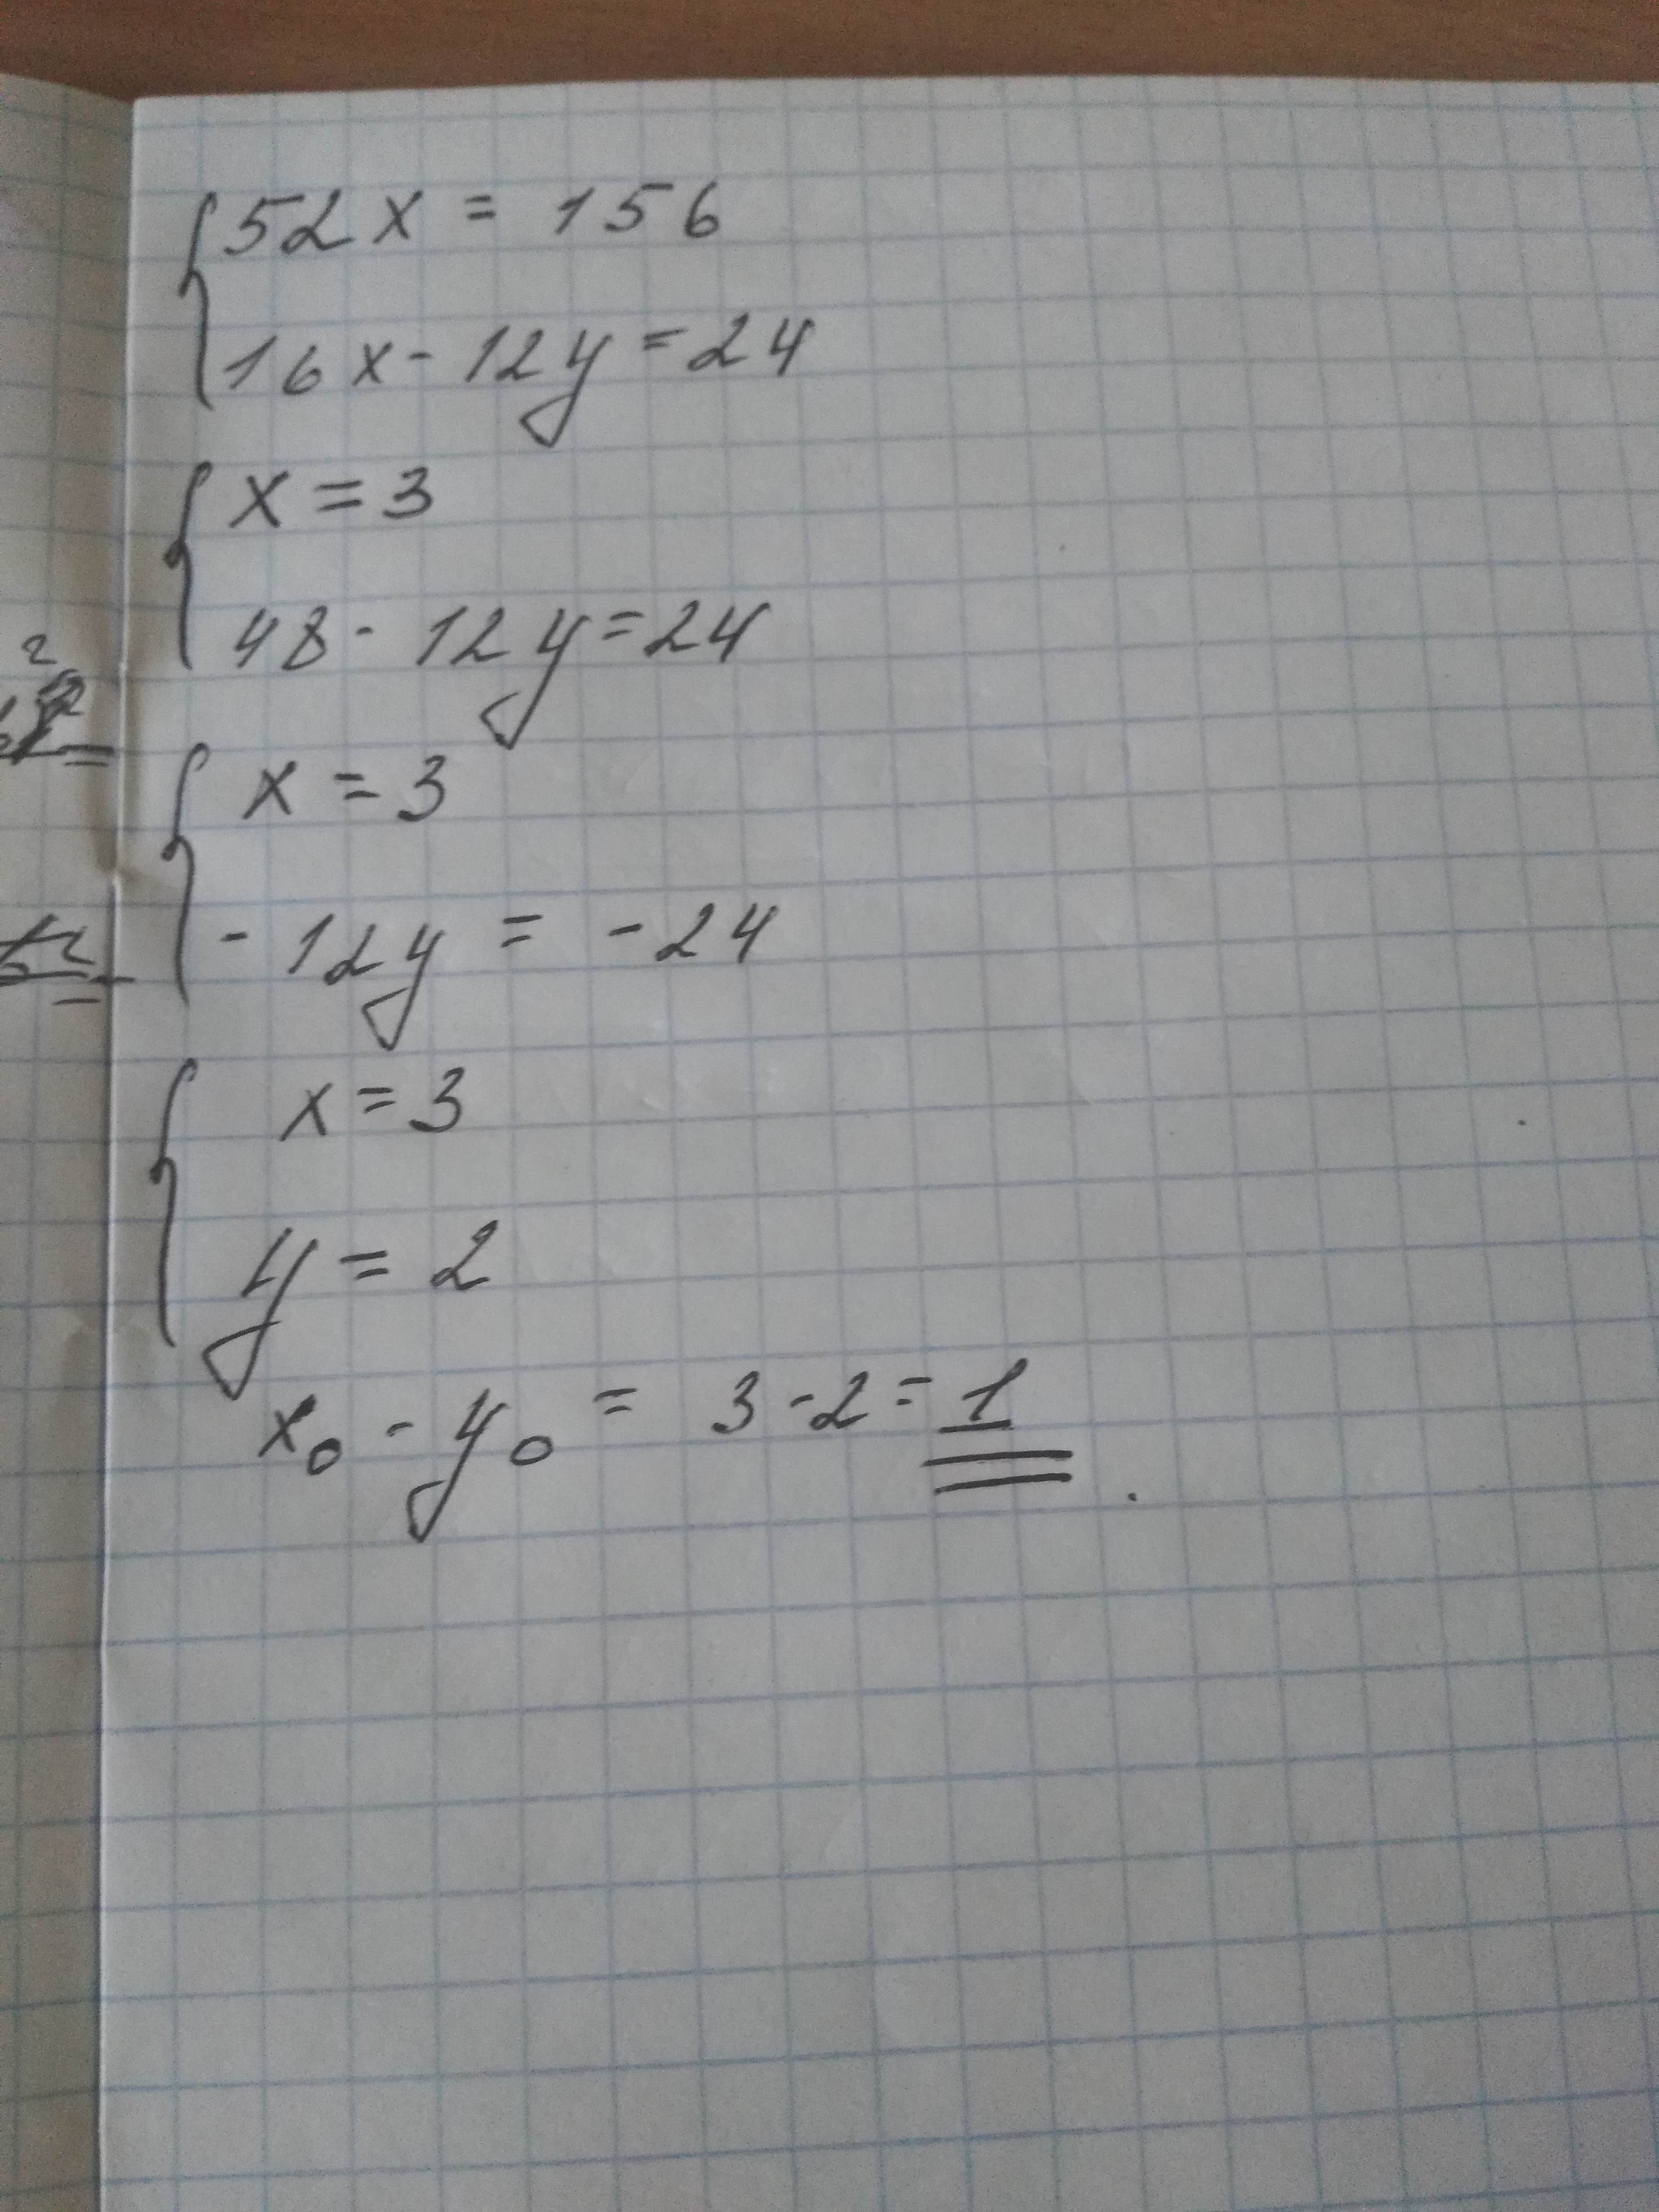 52x = 156
16x - 12y = 24
x = 3
48 - 12y = 24
x = 3
- 12y = - 24
x = 3
y = 2
x₀ - y₀ = 3 - 2 = 1